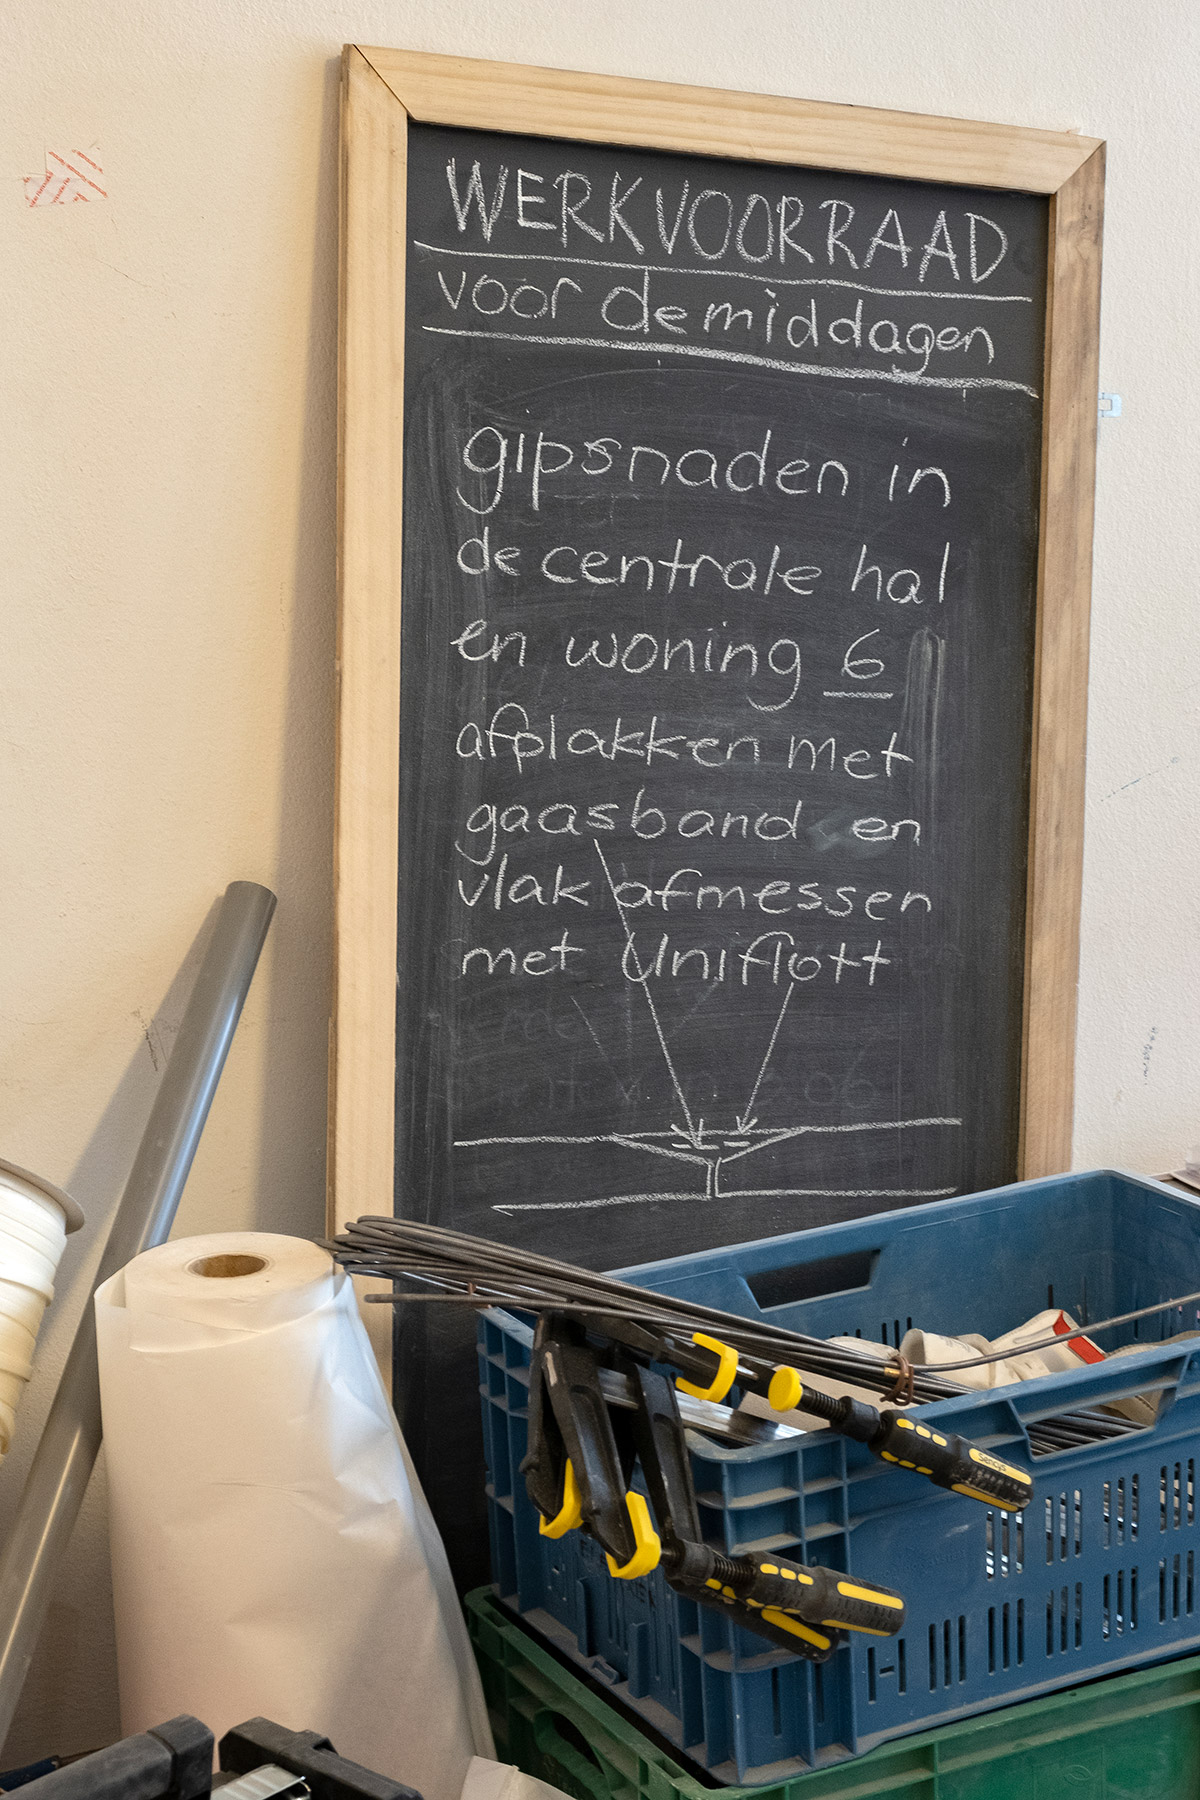 WERKVOORRAAD
voor de middagen
gipsnaden in
de centrale hal
en woning 6
afplakken met
gaasband en
vlak afmessen
met Uniflott